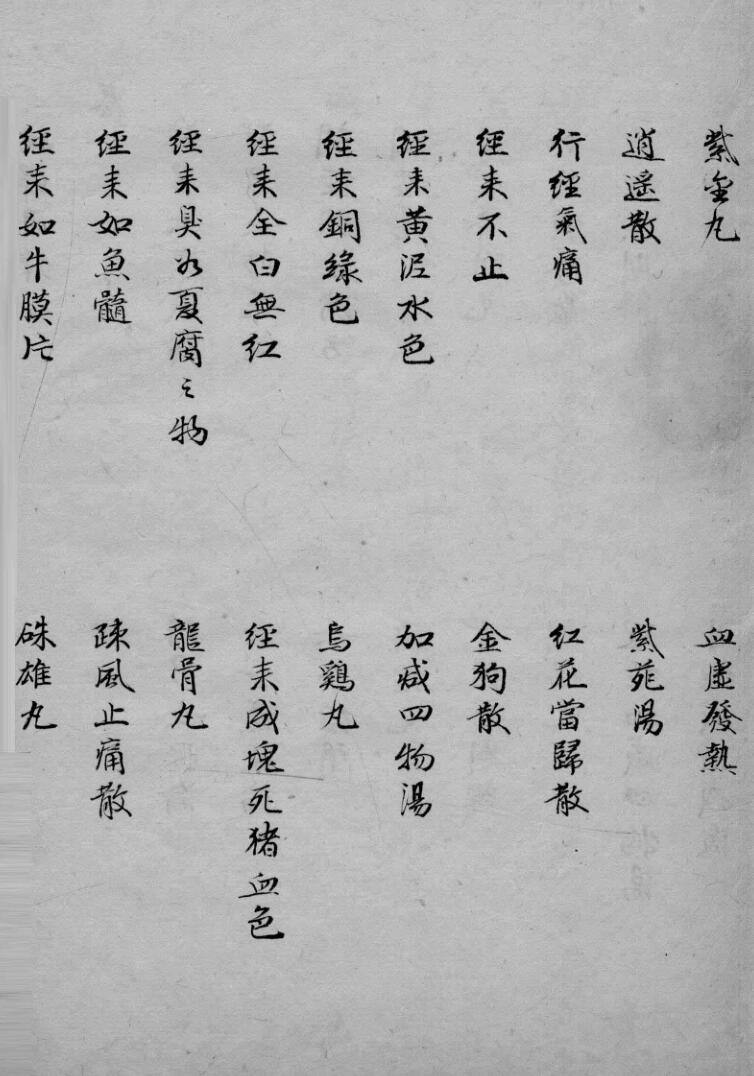 紫金丸
血虛發熱
逍遙散
紫苑湯
行經氣痛
紅花當歸散
經来不止
金狗散
經来黄泥水色
加减四物湯
經来銅緑色
烏鷄丸
經来全白無紅
經来成塊死猪血色
經来臭如夏腐之物
龍骨丸
經来如魚髓
疎風止痛散
經来如牛膜片
硃雄丸